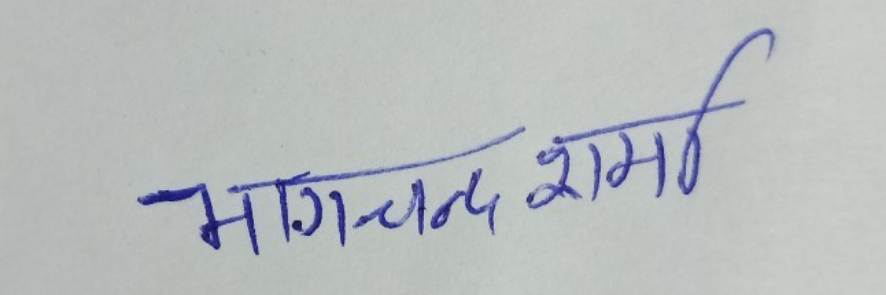 भागचन्द शर्मा